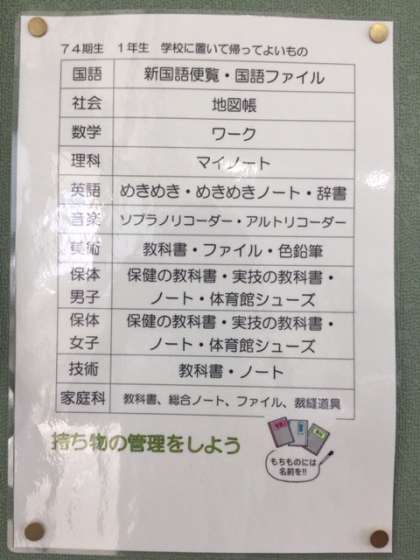 74期生 1年生 学校に置いて帰ってよいもの
国語 新国語便覧・国語ファイル
社会 地図帳
数学 ワーク
理科 マイノート
英語 めきめき・めきめきノート・辞書
音楽 ソプラノリコーダー・アルトリコーダー
美術 教科書・ファイル・色鉛筆
保体 保健の教科書・実技の教科書・
男子 ノート・体育館シューズ
保体 保健の教科書・実技の教科書・
女子 ノート・体育館シューズ
技術 教科書・ノート
家庭科 教科書、総合ノート、ファイル、裁縫道具
持ち物の管理をしよう
もちものには
名前を!!